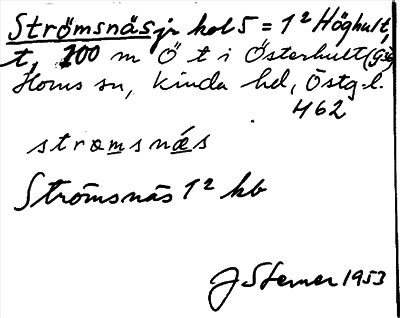 Strömsnäs jr kol 5 = 1² Höghult,
t, 200 m Ö t i Österhult (Gsg)
Horns sn, Kinda hd, Östg. l.
462
stromsnæs
Strömsnäs 1² kb
J Sterner 1953